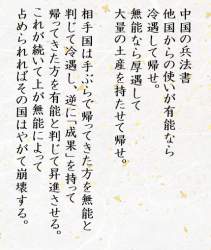 中国の兵法書
他国からの使いが有能なら
冷遇して帰せ。
無能なら厚遇して
大量の土産を持たせて帰せ。
相手国は手ぶらで帰ってきた方を無能と
判じて冷遇し、逆に「成果」を持って
帰ってきた方を有能と判じて昇進させる。
これが続いて上が無能によって
占められればその国はやがて崩壊する。